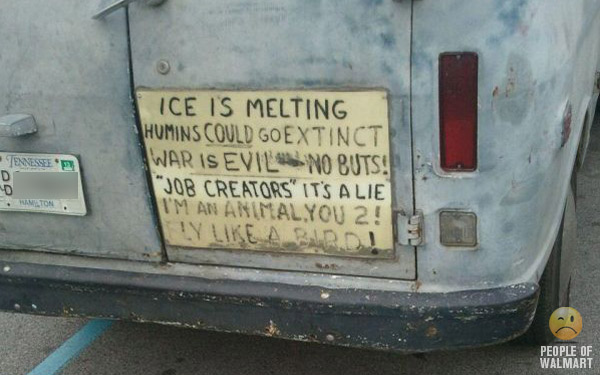 ICE IS MELTING
HUMINS COULD GO EXTINCT
WAR IS EVIL NO BUTS!
"JOB CREATORS" IT'S A LIE
I'M AN ANIMAL.YOU 2!
FLY LIKE A BIRD!
TENNESSEE
HAMILTON
PEOPLE OF
WALMART